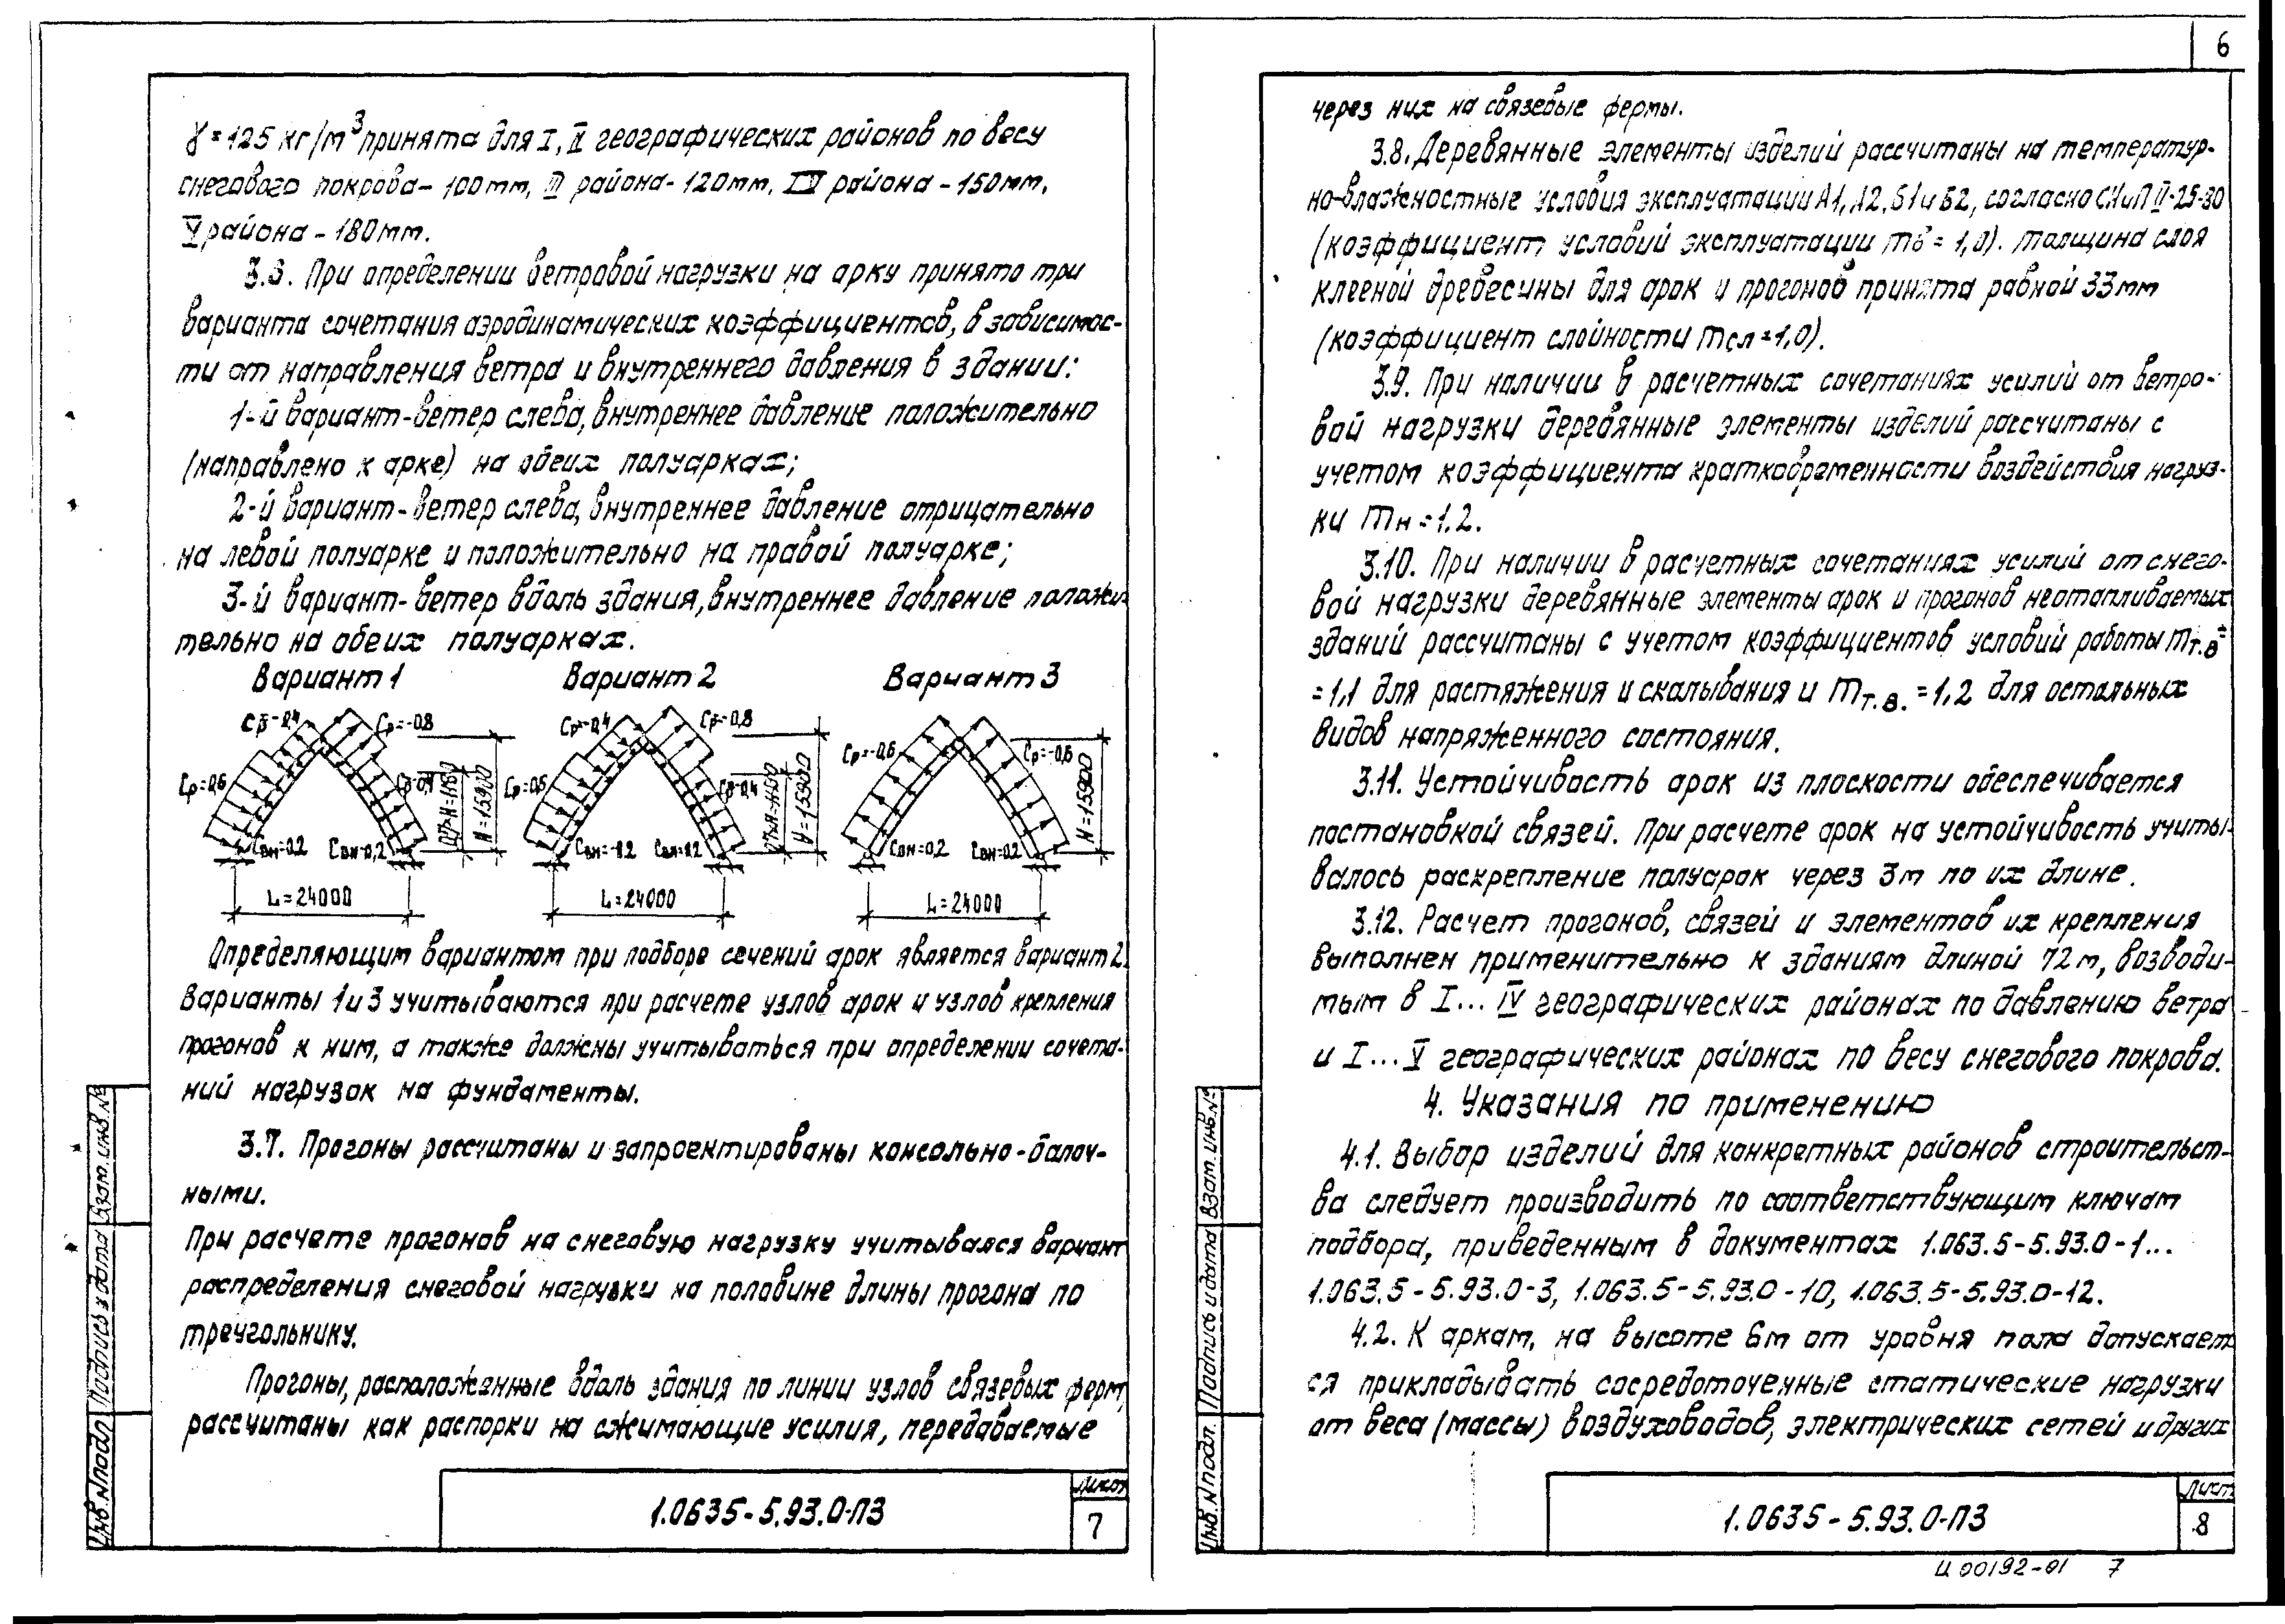 6
γ=125 кг/м³ принята для I, II географических районов по весу
снегового покрова - 100мм, III района - 120мм, IV района - 150мм,
V района - 180мм.
3.6. При определении ветровой нагрузки на арку принято три
варианта сочетания аэродинамических коэффициентов, в зависимос-
ти от направления ветра и внутреннего давления в здании:
1-й вариант - ветер слева, внутреннее давление положительно
(направлено к арке) на обеих полуарках;
2-й вариант - ветер слева, внутреннее давление отрицательно
на левой полуарке и положительно на правой полуарке;
3-й вариант - ветер вдоль здания, внутреннее давление положи-
тельно на обеих полуарках.
Вариант 1 Вариант 2 Вариант 3
Ср=-0,4 Ср=-0,8 Ср=-0,4 Ср=-0,8 Ср=-0,6 Ср=-0,6
Ср=0,6 Ср=-0,4 H=15900 Ср=0,6 Ср=-0,4 H=15900 H=15900
Свн=0,2 Свн=0,2 Свн=-0,2 Свн=0,2 Свн=0,2 Свн=0,2
L=24000 L=24000 L=24000
Определяющим вариантом при подборе сечений арок является вариант 2.
Варианты 1 и 3 учитываются при расчете узлов арок и узлов крепления
прогонов к ним, а также должны учитываться при определении сочета-
ний нагрузок на фундаменты.
3.7. Прогоны рассчитаны и запроектированы консольно-балоч-
ными.
При расчете прогонов на снеговую нагрузку учитывался вариант
распределения снеговой нагрузки на половине длины прогона по
треугольнику.
Прогоны, расположенные вдоль здания по линии узлов связевых ферм,
рассчитаны как распорки на сжимающие усилия, передаваемые
Инв.№подл Подпись и дата Взам.инв.№
1.0635-5.93.0-ПЗ
Лист
7
через них на связевые фермы.
3.8. Деревянные элементы изделий рассчитаны на температур-
но-влажностные условия эксплуатации А1, А2, Б1 и Б2, согласно СНиП II-25-80
(коэффициент условий эксплуатации mб = 1,0). Толщина слоя
клееной древесины для арок и прогонов принята равной 33мм
(коэффициент слойности mсл=1,0).
3.9. При наличии в расчетных сочетаниях усилий от ветро-
вой нагрузки деревянные элементы изделий рассчитаны с
учетом коэффициента кратковременности воздействия нагруз-
ки mн=1.2.
3.10. При наличии в расчетных сочетаниях усилий от снего-
вой нагрузки деревянные элементы арок и прогонов неотапливаемых
зданий рассчитаны с учетом коэффициентов условий работы mт.в=
=1,1 для растяжения и скалывания и mт.в.=1,2 для остальных
видов напряженного состояния.
3.11. Устойчивость арок из плоскости обеспечивается
постановкой связей. При расчете арок на устойчивость учиты-
валось раскрепление полуарок через 3м по их длине.
3.12. Расчет прогонов, связей и элементов их крепления
выполнен применительно к зданиям длиной 72м, возводи-
мым в I... IV географических районах по давлению ветра
и I... V географических районах по весу снегового покрова.
4. Указания по применению
4.1. Выбор изделий для конкретных районов строительст-
ва следует производить по соответствующим ключам
подбора, приведенным в документах 1.063.5-5.93.0-1...
1.063.5-5.93.0-3, 1.063.5-5.93.0-10, 1.063.5-5.93.0-12.
4.2. К аркам, на высоте 6м от уровня пола допускает
ся прикладывать сосредоточенные статические нагрузки
от веса (массы) воздуховодов, электрических сетей и других
Инв.№подл. Подпись и дата Взам.инв.№
1.0635-5.93.0-ПЗ
Лист
8
Ц00192-01 7